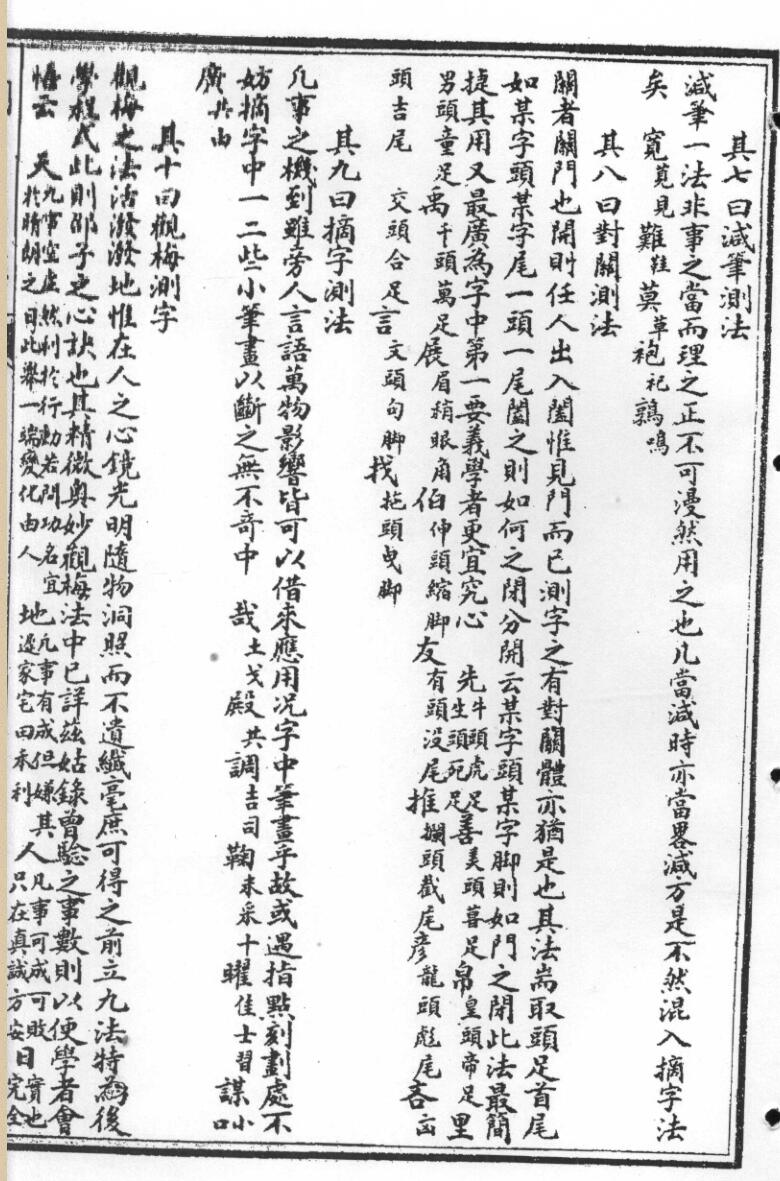 其七曰減筆測法
減筆一法非事之當而理之正不可漫然用之也凡當減時亦當畧減方是不然混入摘字法
矣 寬莧見難鞋莫草袍祀鶉鳴
其八曰對關測法
關者關門也開則任人出入闔惟見門而已測字之有對關體亦猶是也其法耑取頭足首尾
如某字頭某字尾一頭一尾闔之則如何之閉分開云某字頭某字脚則如門之閉此法最簡
捷其用又最廣為字中第一要義學者更宜究心 先牛頭虎足生頭死足善美頭喜足帛皇頭帝足里
男頭童足禹千頭萬足展眉稍眼角伯伸頭縮脚友有頭没尾推攔頭截尾彦龍頭彪尾吝
頭吉尾 交頭合足言文頭句脚找拖頭曳脚
其九曰摘字測法
凡事之機到雖旁人言語萬物影響皆可以借來應用况字中筆畫乎故或遇指點刻劃處不
妨摘字中一二些小筆畫以斷之無不奇中 哉土戈殿共調吉司鞠米采十矅佳士習謀小口
廣共由
其十曰觀梅測字
觀梅之法活潑潑地惟在人之心鏡光明隨物洞照而不遺纖毫庶可得之前立九法特為後
學程式此則邵子之心訣也其精微奥妙觀梅法中已詳茲姑錄曾驗之事數則以便學者會
悟云 天凡事空虛然利於行動若問功名宜於晴朗之日此舉一端變化由人 地凡事有成但嫌其邊家宅田禾利 人凡事可成可敗只在真誠方妥 日實也完全